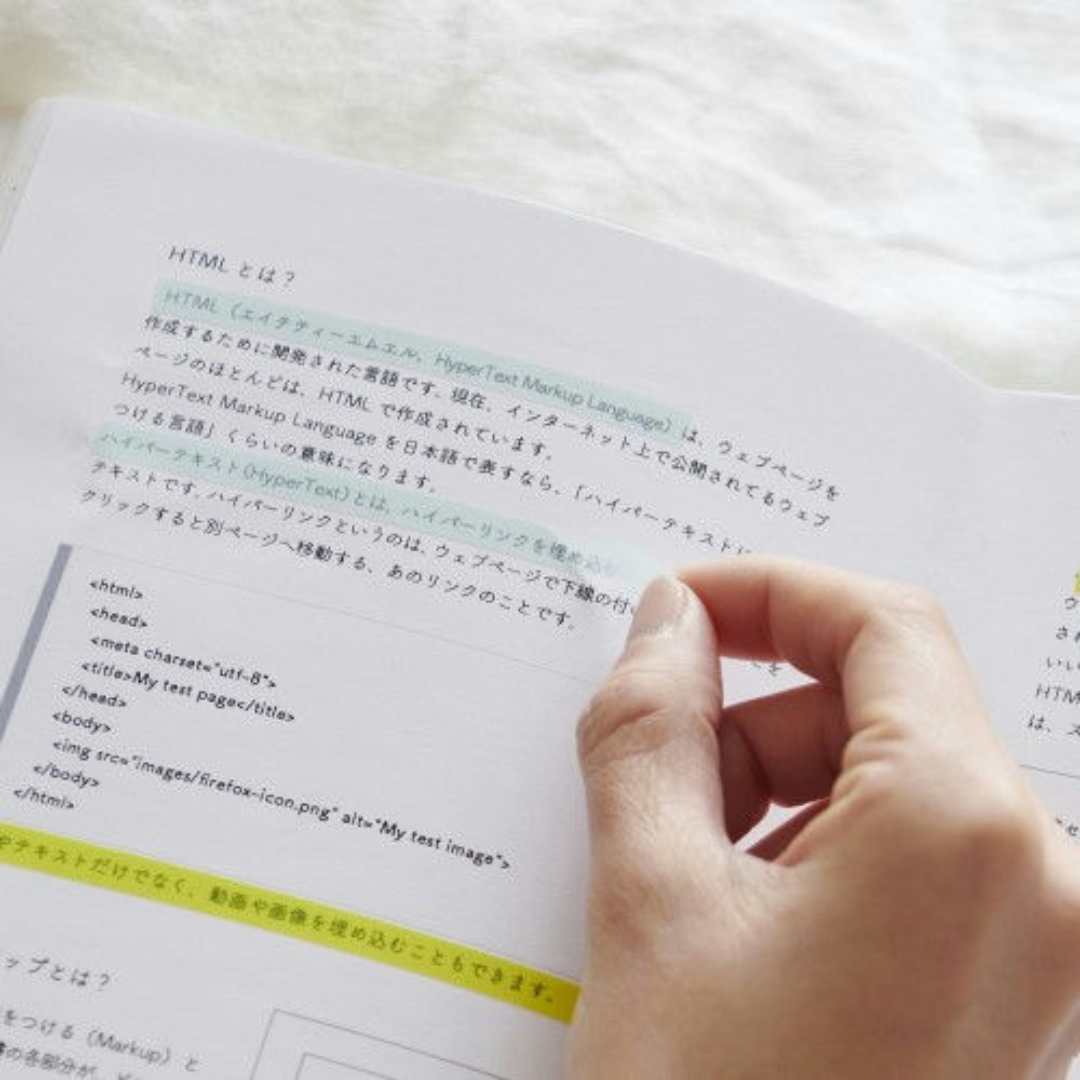 HTML とは？
HTML（エイチティーエムエル、HyperText Markup Language）は、ウェブページを
作成するために開発された言語です。現在、インターネット上で公開されてるウェブ
ページのほとんどは、HTML で作成されています。
HyperText Markup Language を日本語で表すなら、「ハイパーテキストに
つける言語」くらいの意味になります。
ハイパーテキスト(HyperText)とは、ハイパーリンクを埋め込む
テキストです。ハイパーリンクというのは、ウェブページで下線の付
クリックすると別ページへ移動する、あのリンクのことです。
<html>
<head>
<meta charset="utf-8">
<title>My test page</title>
</head>
<body>
<img src="images/firefox-icon.png" alt="My test image">
</body>
</html>
やテキストだけでなく、動画や画像を埋め込むこともできます。
ップとは？
をつける（Markup）と
の各部分が、
ウ
され
いい
HTM
は、ス